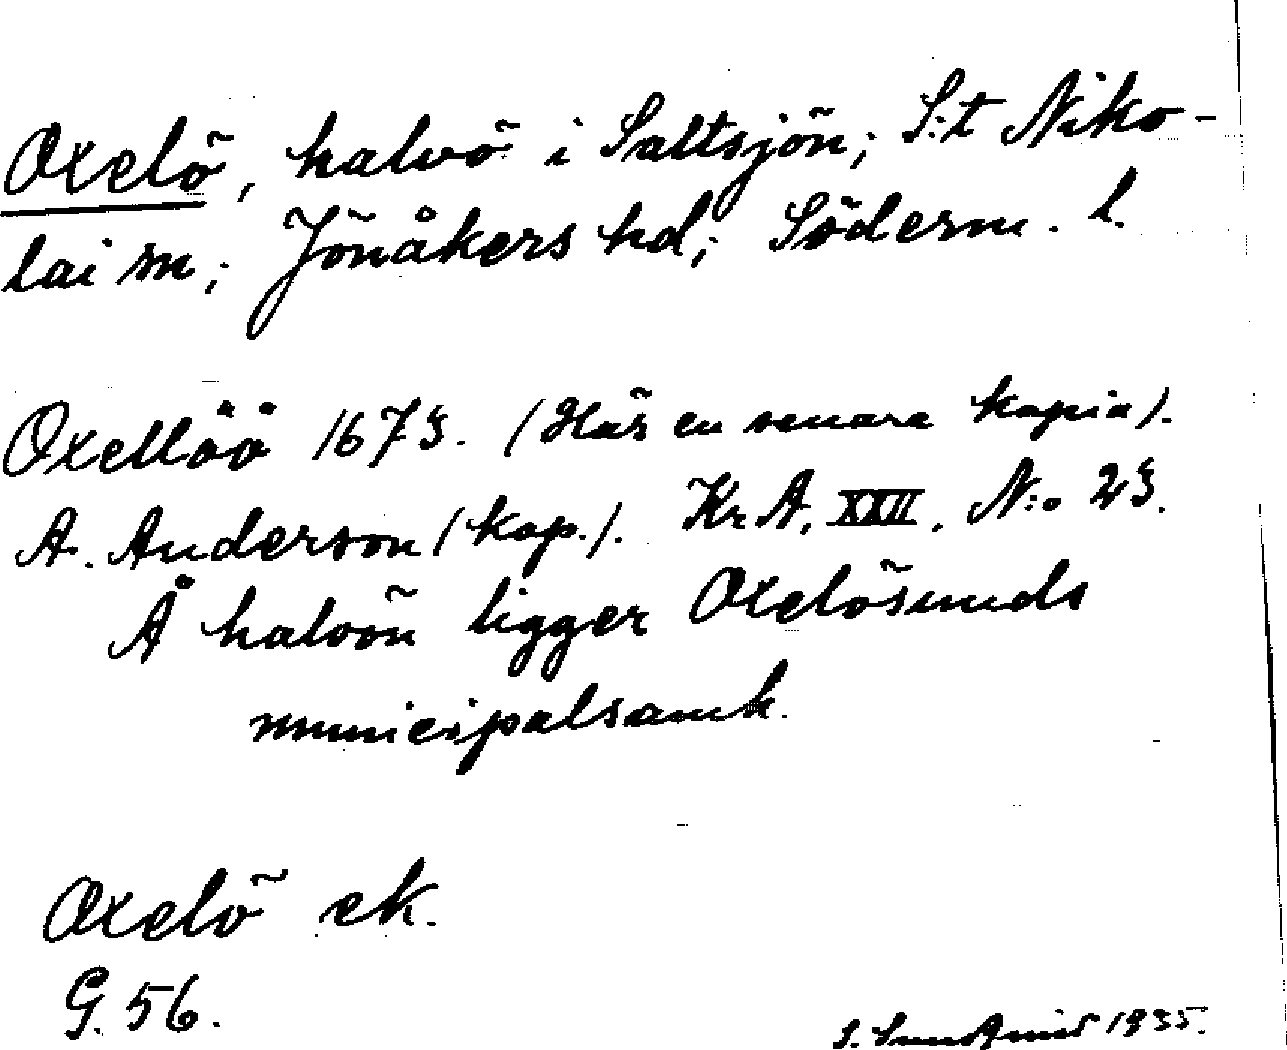 Oxelö, halvö i Saltsjön; S:t Niko-
lai sn; Jönåkers hd; Söderm. l.
Oxellöö 1673. (Här en senare kopia).
A. Anderson (kop.). Kr A, XXII, N:o 23.
Å halvön ligger Oxelösunds
municipalsamh.
Oxelö ek.
G. 56.
1935.